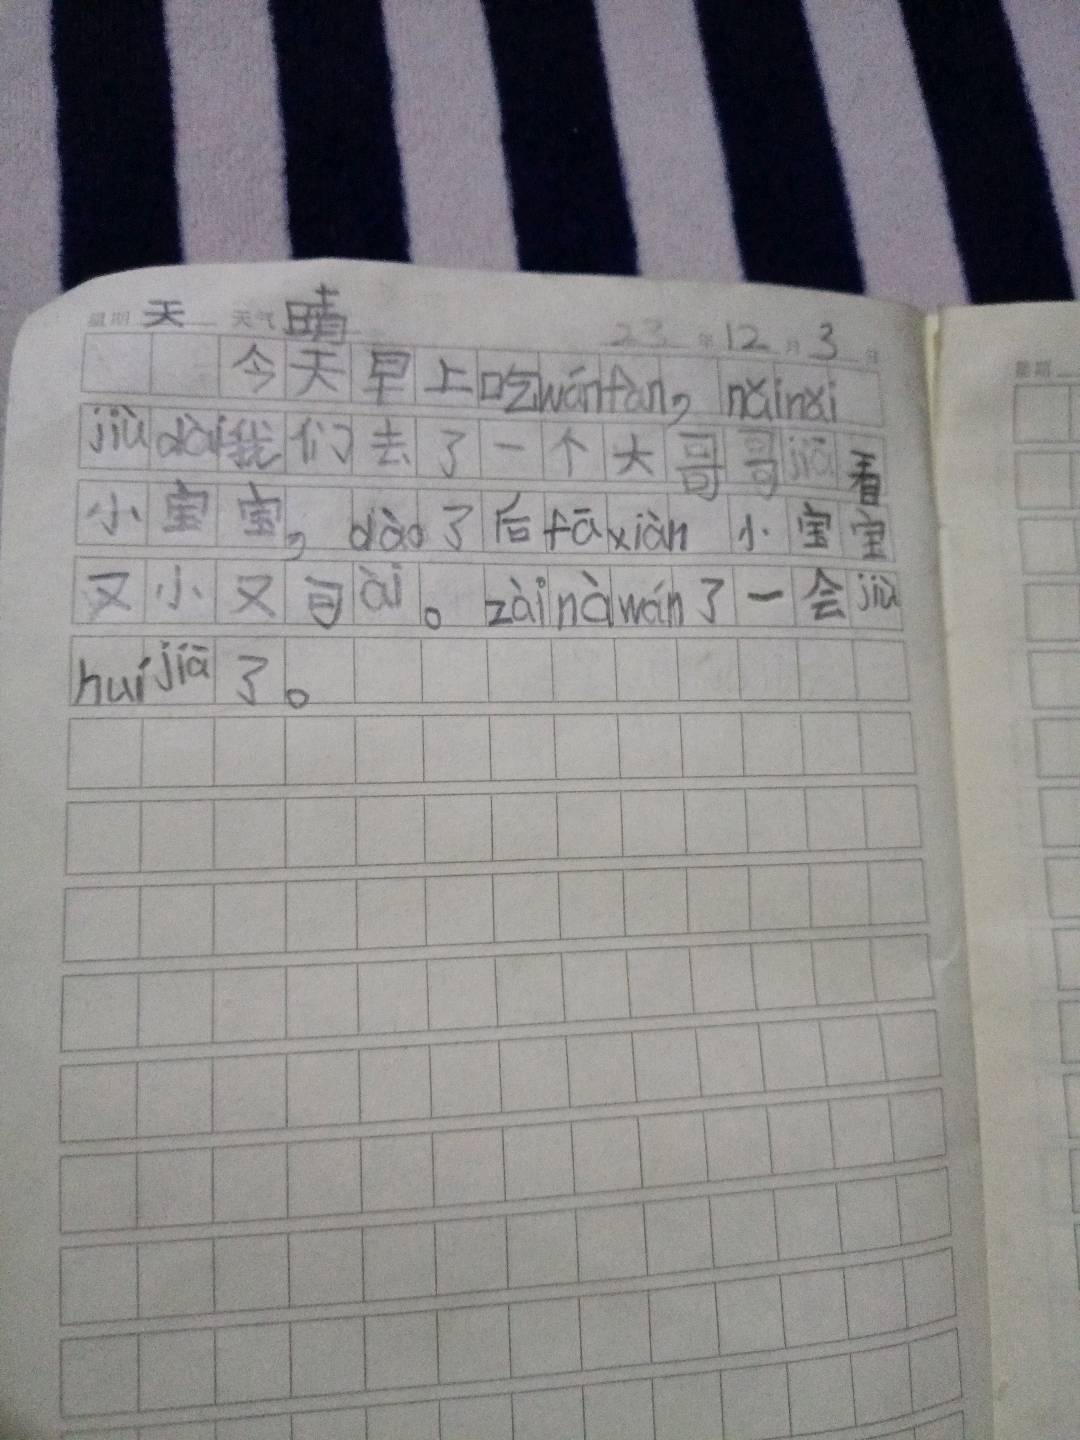 星期 天 天气 晴 23 年 12 月 3 日
今天早上吃wánfàn，nǎinai
jiù dài我们去了一个大哥哥jiā看
小宝宝，dào了后fāxiàn 小宝宝
又小又可ài。zàinàwán了一会jiù
huíjiā了。
星期